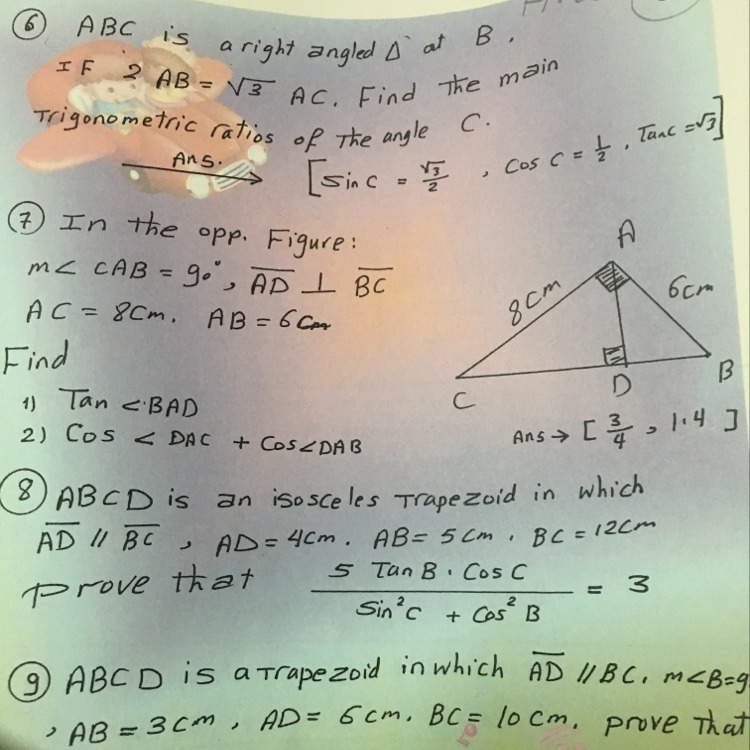 6 ABC is a right angled Δ at B.
IF 2 AB = √3 AC. Find the main
Trigonometric ratios of the angle C.
Ans. [Sin C = √3/2 , Cos C = 1/2 , Tan C = √3]
7 In the opp. Figure:
m< CAB = 90°, AD ⊥ BC
AC = 8cm. AB = 6cm
Find
1) Tan <BAD
2) Cos < DAC + Cos<DAB
A
8cm
6cm
C
D
B
Ans → [ 3/4 , 1.4 ]
8 ABCD is an isosceles Trapezoid in which
AD // BC , AD = 4cm. AB = 5cm. BC = 12cm
prove that 5 Tan B . Cos C / Sin² C + Cos² B = 3
9 ABCD is a Trapezoid in which AD // BC, m<B=9
, AB = 3cm, AD = 6cm. BC = 10cm. prove that